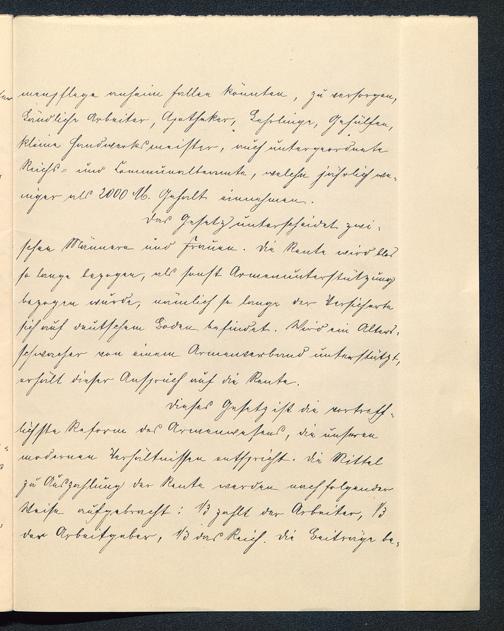 menpflege anheim fallen könnten, zu versorgen,
Ländliche Arbeiter, Apotheker, Lehrlinge, Gehülfen,
kleine Handwerksmeister, auch untergeordnete
Reichs- und Communalbeamte, welche jährlich we-
niger als 2000 M. Gehalt einnehmen.
Das Gesetz unterscheidet zwi-
schen Männern und Frauen. Die Rente wird blos
so lange bezogen, als sonst Armenunterstützung
bezogen würde, nämlich so lange der Versicherte
sich auf deutschem Boden befindet. Wird ein Alters-
schwacher von einem Armenverband unterstützt,
erhält dieser Anspruch auf die Rente.
Dieses Gesetz ist die vortreff-
lichste Reform des Armenwesens, die unseren
modernen Verhältnissen entspricht. Die Mittel
zu Auszahlung der Rente werden nachfolgender
Weise aufgebracht: 1/3 zahlt der Arbeiter, 1/3
der Arbeitgeber, 1/3 das Reich. Die Beiträge be-